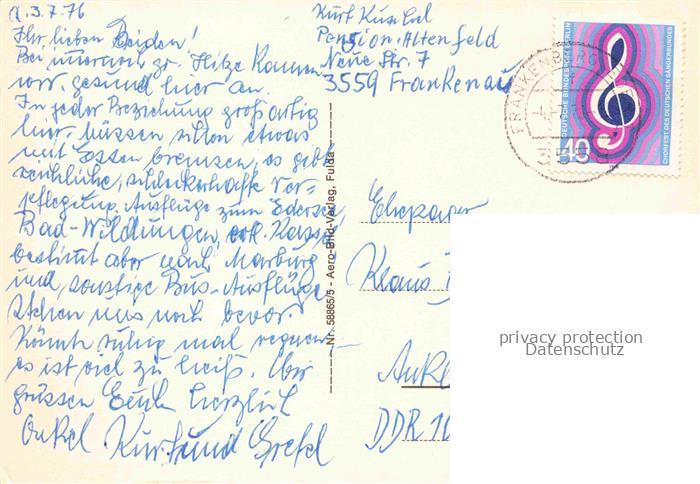 d. 3.7.76
Ihr lieben Beiden!
Bei unwarm. gr. Hitze kamen
wir gesund hier an.
In jeder Beziehung großartig
hier, müssen schon etwas
mit Essen bremsen, es gibt
reichliche, schlaraffenhafte Ver-
pflegung. Ausflüge zum Edersee,
Bad-Wildungen, evtl. Kassel
bestimmt aber nach Marburg
und sonstige Bus-Ausflüge
stehen uns noch bevor.
Könnte ruhig mal regnen -
es ist viel zu heiß. Wir
grüssen Euch herzlich
Onkel Kurt und Gretel
Kurt
Pension Altenfeld
Neue Str. 7
3559 Frankenau
Nr. 58865/5 - Aero-Bild-Verlag, Fulda
FRANKENBERG
DEUTSCHE BUNDESPOST BERLIN
40
CHORFEST DES DEUTSCHEN SÄNGERBUNDES
Ehepaar
Klaus
DDR
privacy protection
Datenschutz